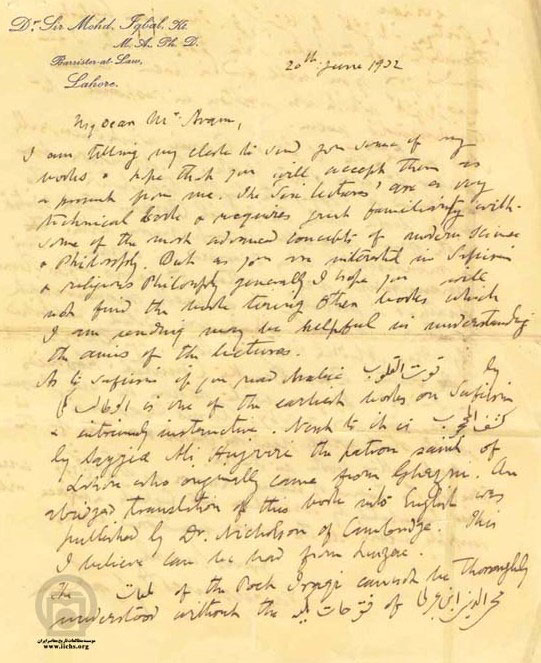 Dr. Sir Mohd. Iqbal, Kt.
M. A., Ph. D.
Barrister-at-Law,
Lahore.
20th June 1932
My dear Mr
I am telling my clerk to send you some of my
works & hope that you will accept them as
a present from me. The Six lectures' are a very
technical book & requires great familiarity with
some of the most advanced concepts of modern science
& Philosophy. But as you are interested in Sufiism
& religious Philosophy generally I hope you will
not find the book tiring other works which
I am sending may be helpful in understanding
the aims of the lectures.
As to Sufiism if you read Arabic قوت القلوب by
is one of the earliest works on Sufiism
& extremely instructive. Next to it is کشف المحجوب
by Sayyid Ali Hujvere the patron saint of
Lahore who originally came from Ghazni. An
abridged translation of this work into English was
published by Dr. Nicholson of Cambridge. This
I believe can be had from Luzac.
The of the Poet Iraqi cannot be thoroughly
understood without the of
موسسه مطالعات تاریخ معاصر ایران
www.iichs.org